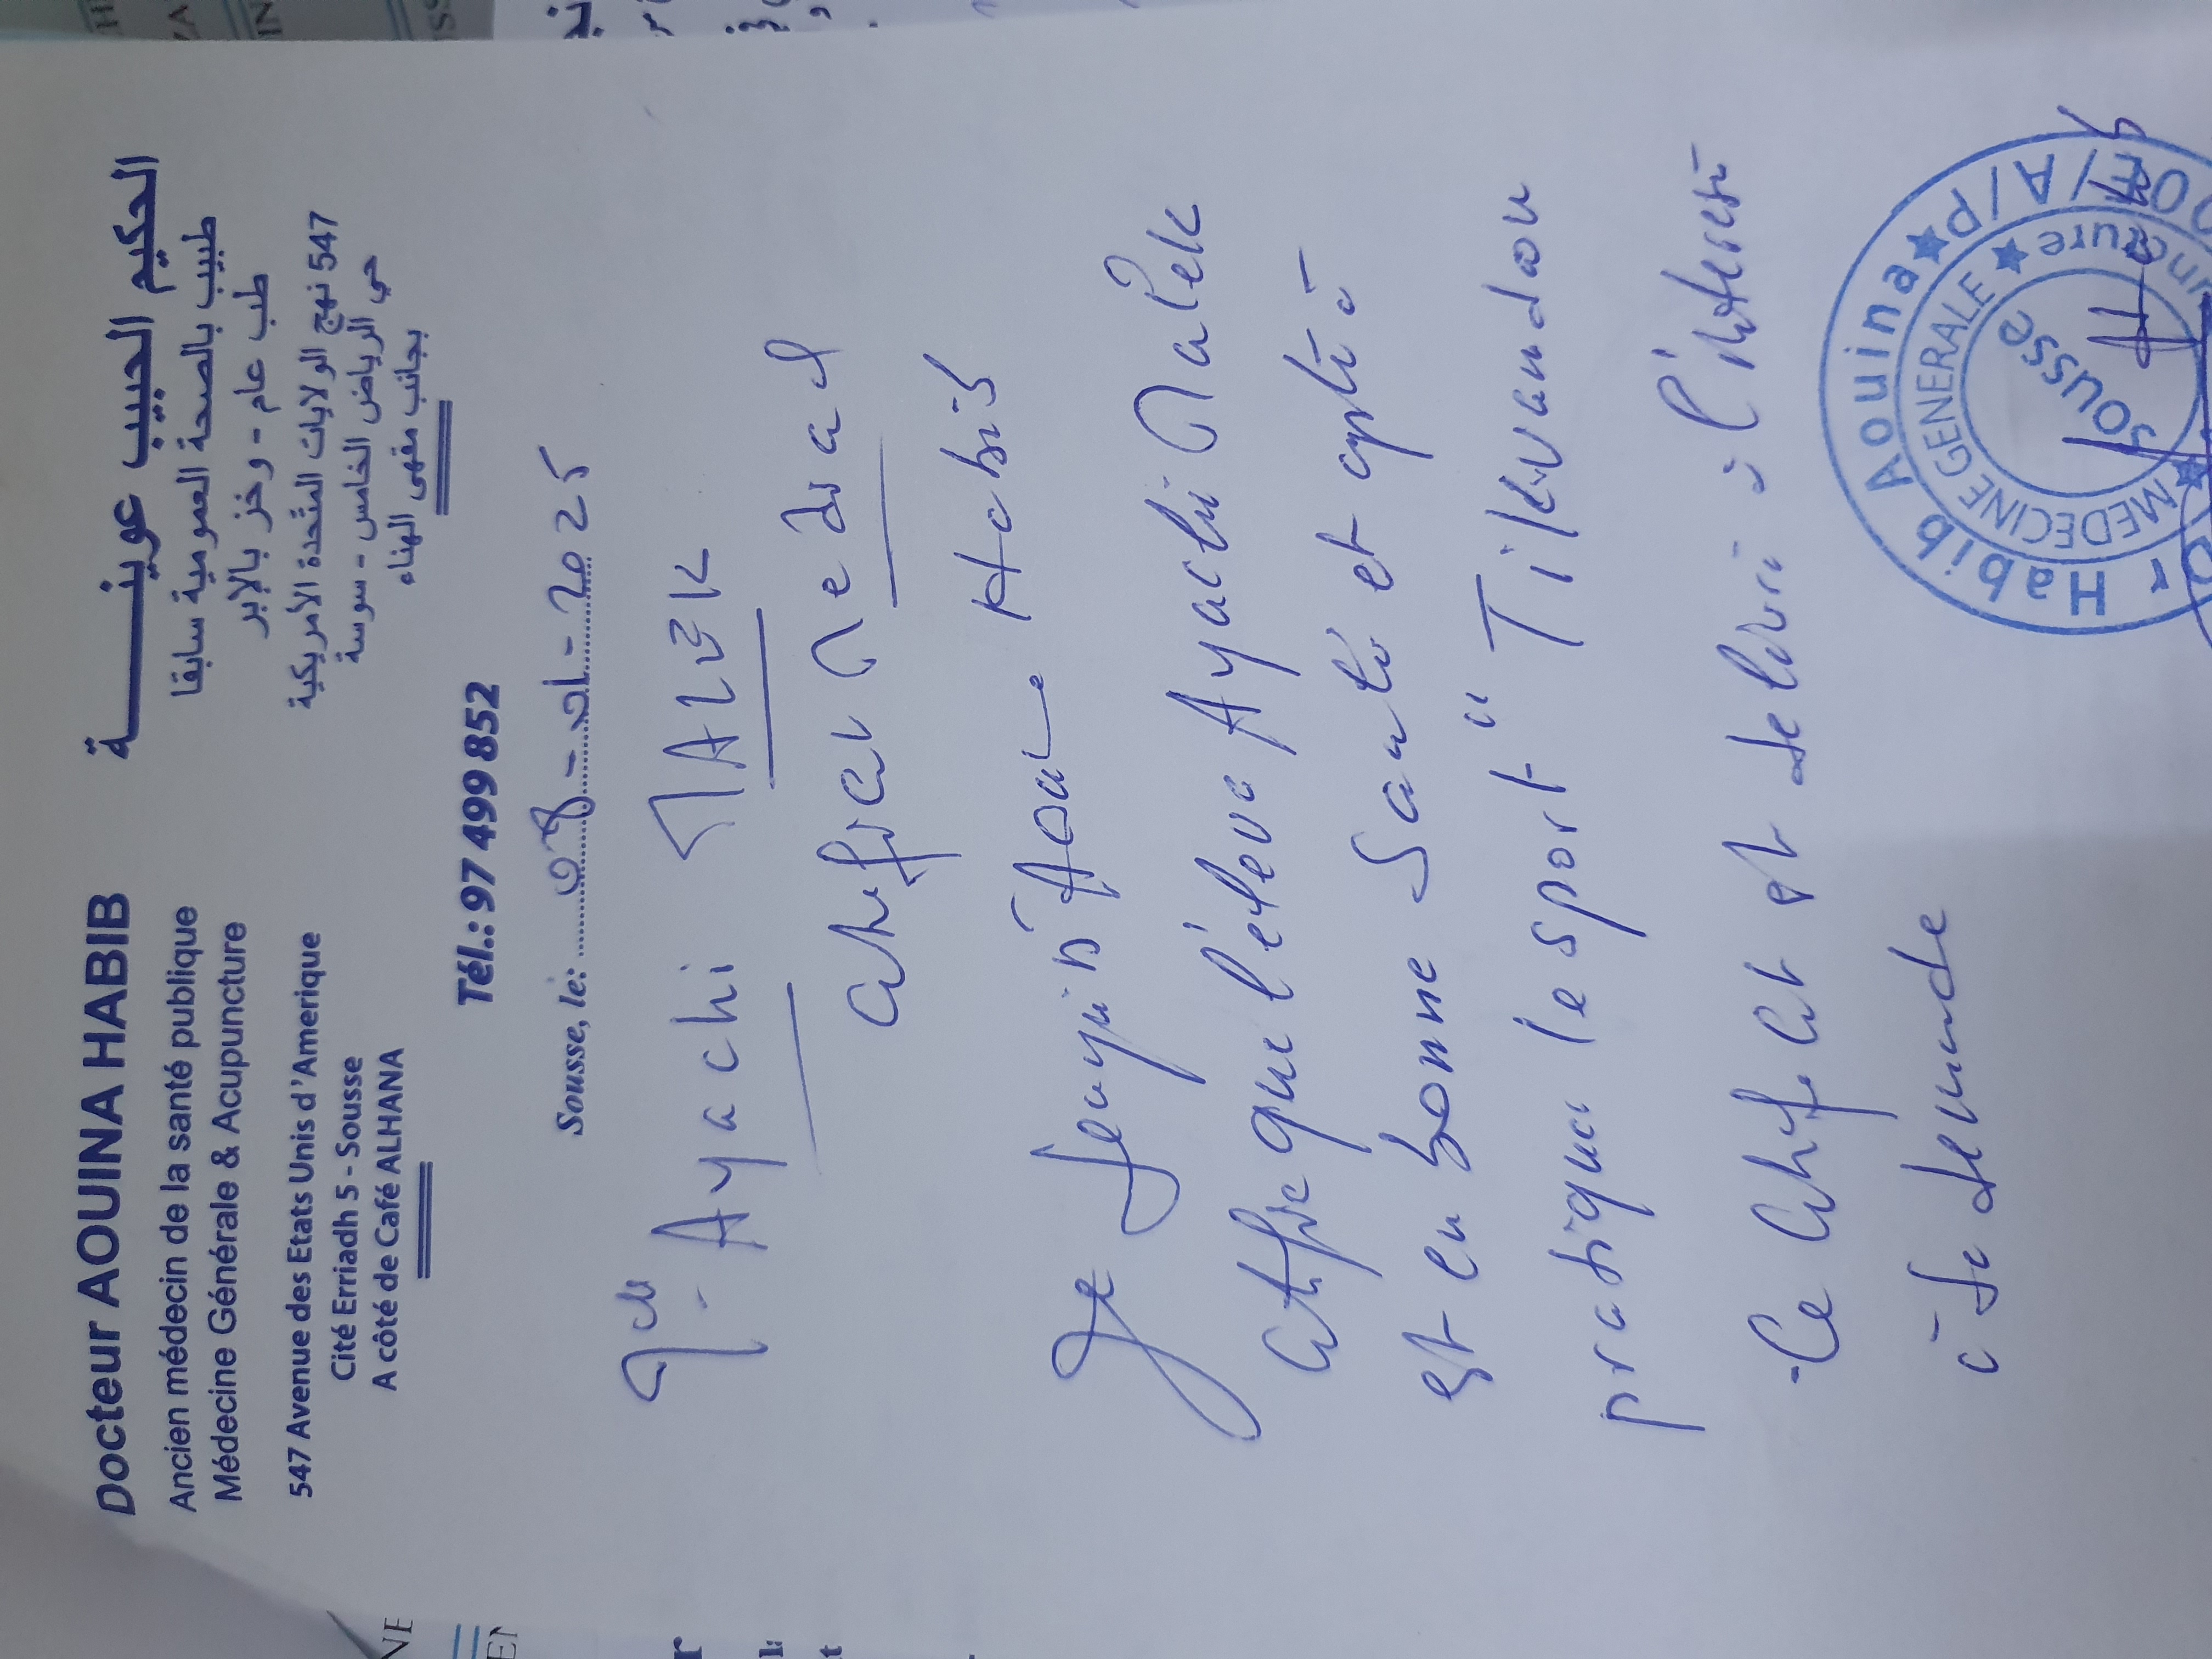 Docteur AOUINA HABIB
Ancien médecin de la santé publique
Médecine Générale & Acupuncture
547 Avenue des Etats Unis d'Amerique
Cité Erriadh 5 - Sousse
A côté de Café ALHANA
الحكيم الحبيب عوينــــــة
طبيب بالصحة العمومية سابقا
طب عام - وخز بالإبر
547 نهج الولايات المتحدة الأمريكية
حي الرياض الخامس - سوسة
بجانب مقهى الهناء
Tél.: 97 499 852
Sousse, le: 08-01-2025
Ayachi MALEK
Certificat Medical
Je Habib Aouina
certifie que l'élève Ayachi Malek
est en bonne santé et apte à
pratiquer le sport "Tikwandou
Ce certificat est delivré à l'interessé
à sa demande
Dr Habib Aouina
MEDECINE GENERALE
Sousse